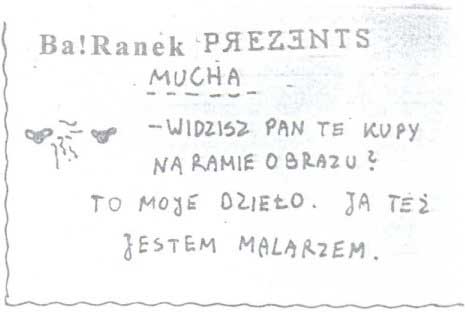 Ba!Ranek PЯEZƎNTS
MUCHA
- WIDZISZ PAN TE KUPY
NA RAMIE OBRAZU?
TO MOJE DZIEŁO. JA TEŻ
JESTEM MALARZEM.